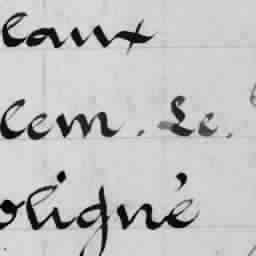 eaux
lem. Le.
oligné